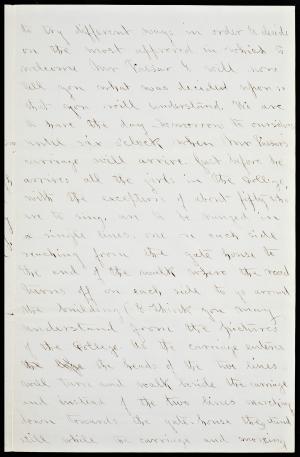 to try different ways in order to decide
on the most approved in which to
welcome Mr Vassar I will now
tell you what was decided upon so
that you will understand. We are
to have the day tomorrow to ourselves
until six o'clock when Mr Vassar's
carriage will arrive. Just before he
arrives all the girls in the College,
with the exception of about fifty who
are to sing, are to be ranged in
single lines, one on each side
reaching from the gate house to
the end of the walk where the road
turns off on each side to go around
the building (I think you may
understand from the pictures
of the College. As the carriage enters
the heads of the two lines
will turn and walk beside the carriage
and instead of the two lines marching
down towards the gate-house they stand
still while the carriage and moving